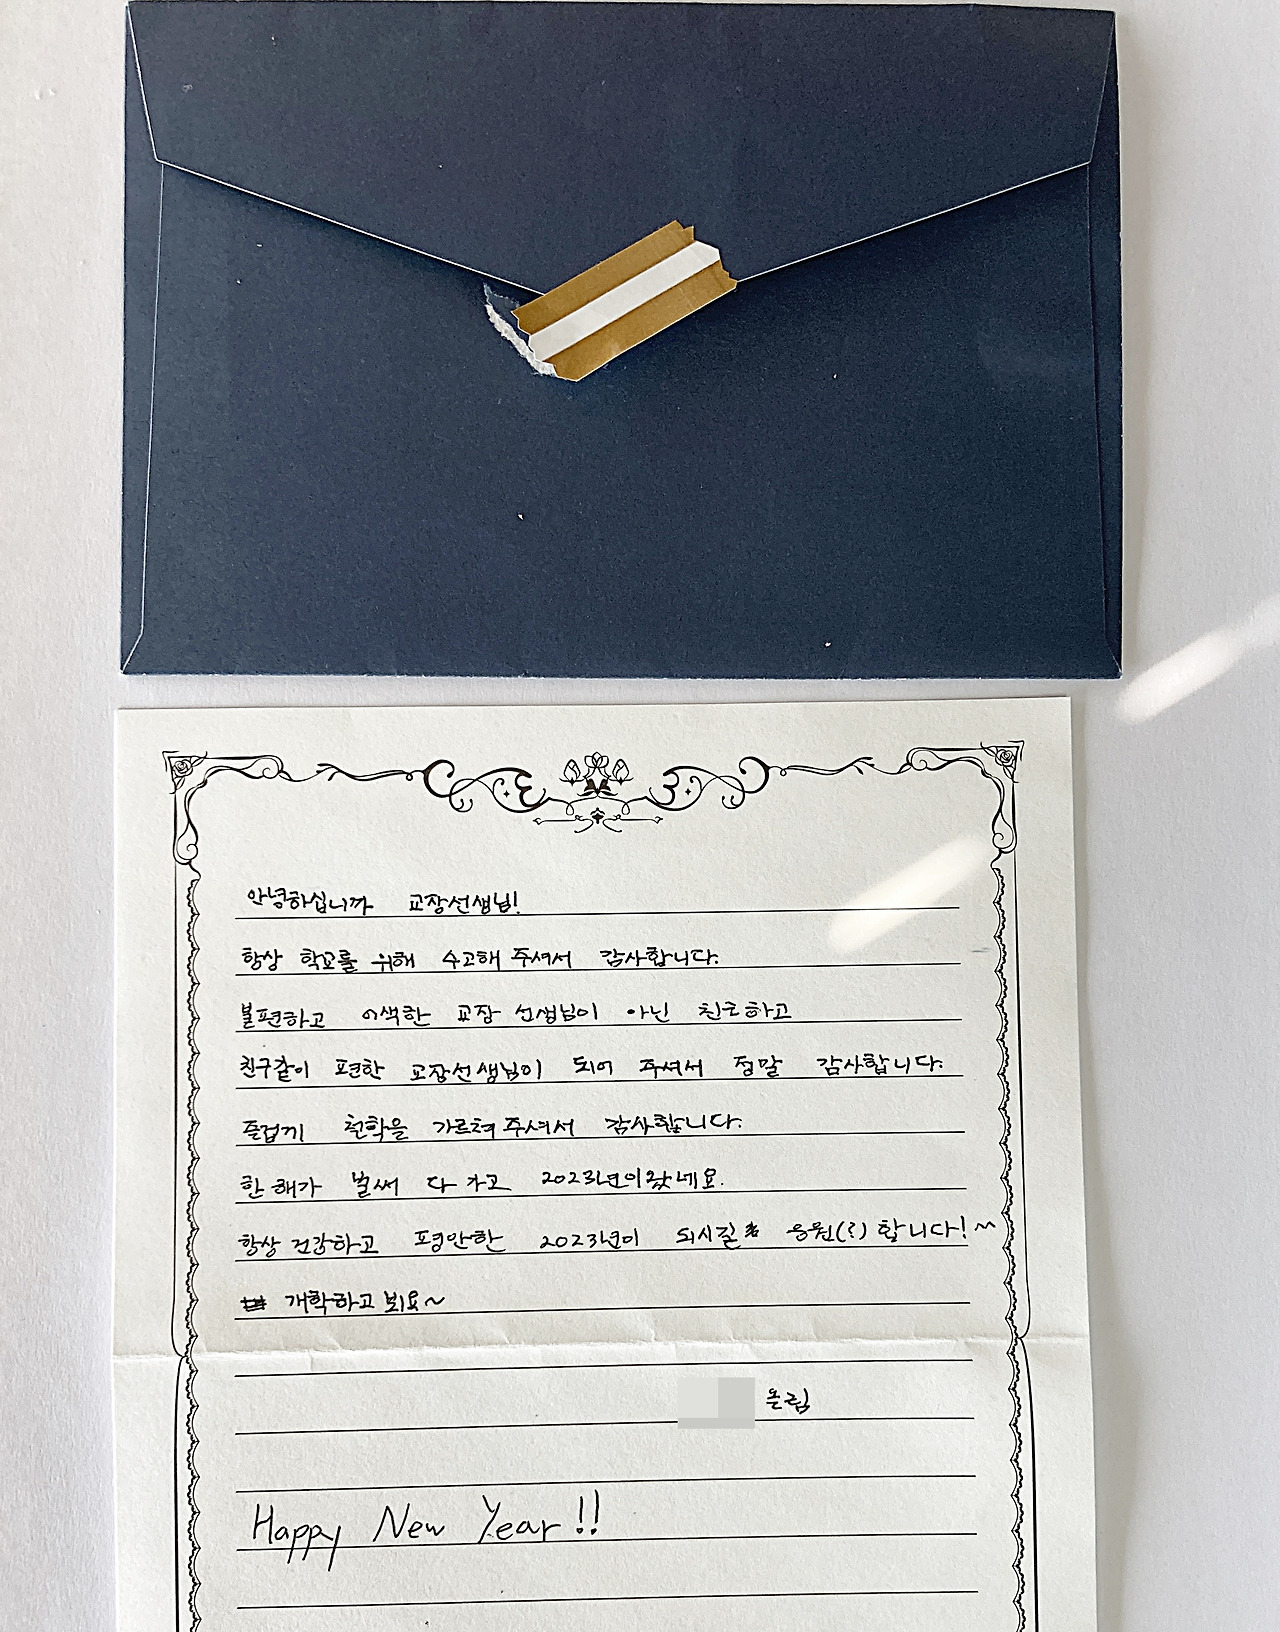 안녕하십니까 교장선생님!
항상 학교를 위해 수고해 주셔서 감사합니다.
불편하고 어색한 교장 선생님이 아닌 친근하고
친구같이 편한 교장선생님이 되어 주셔서 정말 감사합니다.
즐겁게 철학을 가르쳐 주셔서 감사합니다.
한 해가 벌써 다 가고 2023년이 왔네요.
항상 건강하고 평안한 2023년이 되시길 응원(?) 합니다! ^^
개학하고 뵈요~
올림
Happy New Year!!